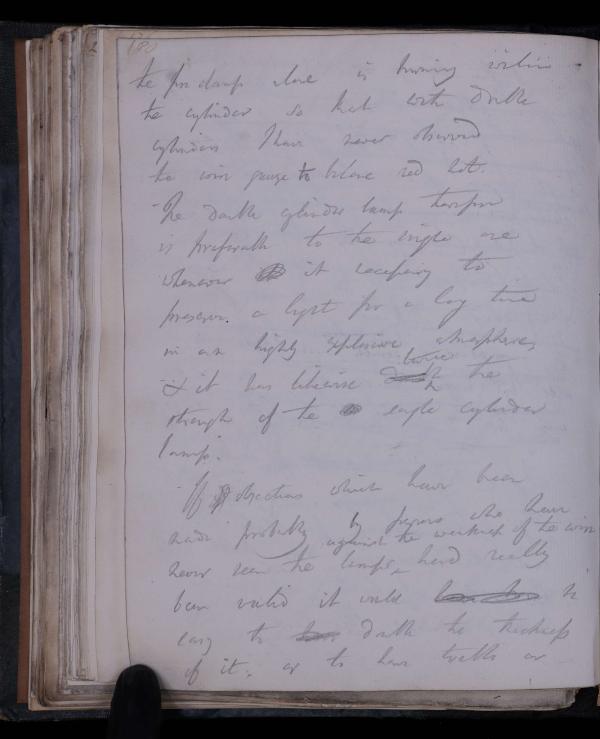 180
the fire damp alone is burning within
the cylinder so that with double
cylinders I have never observed
the wire gauze to become red hot.
The double cylinder lamp therefore
is preferable to the single one
whenever it is necessary to
preserve a light for a long time
in an highly explosive atmosphere
& it has likewise twice the
strength of the single cylinder
lamp.
If objections which have been
made probably by persons who have
against the weakness of the wire
never seen the lamps had really
been valid it would be
easy to double the thickness
of it, or to have treble or